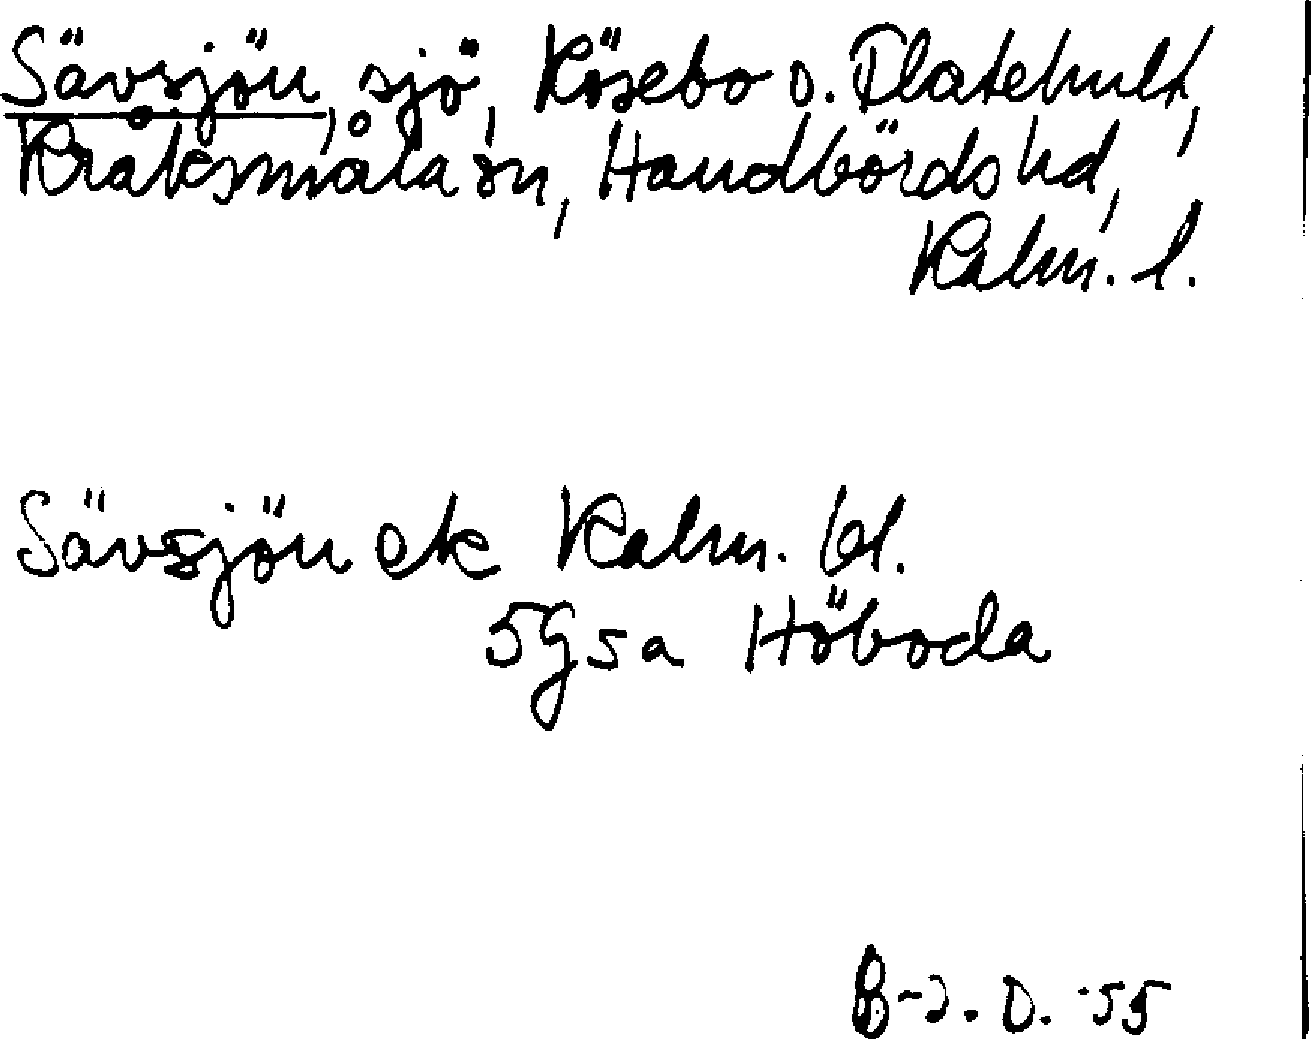 Sävsjön, sjö, Kösebo o. Flatehult,
Kråksmåla sn, Handbörds hd,
Kalm. l.
Sävsjön ek Kalm. bl.
5G5a Höboda
B-J. O. -55